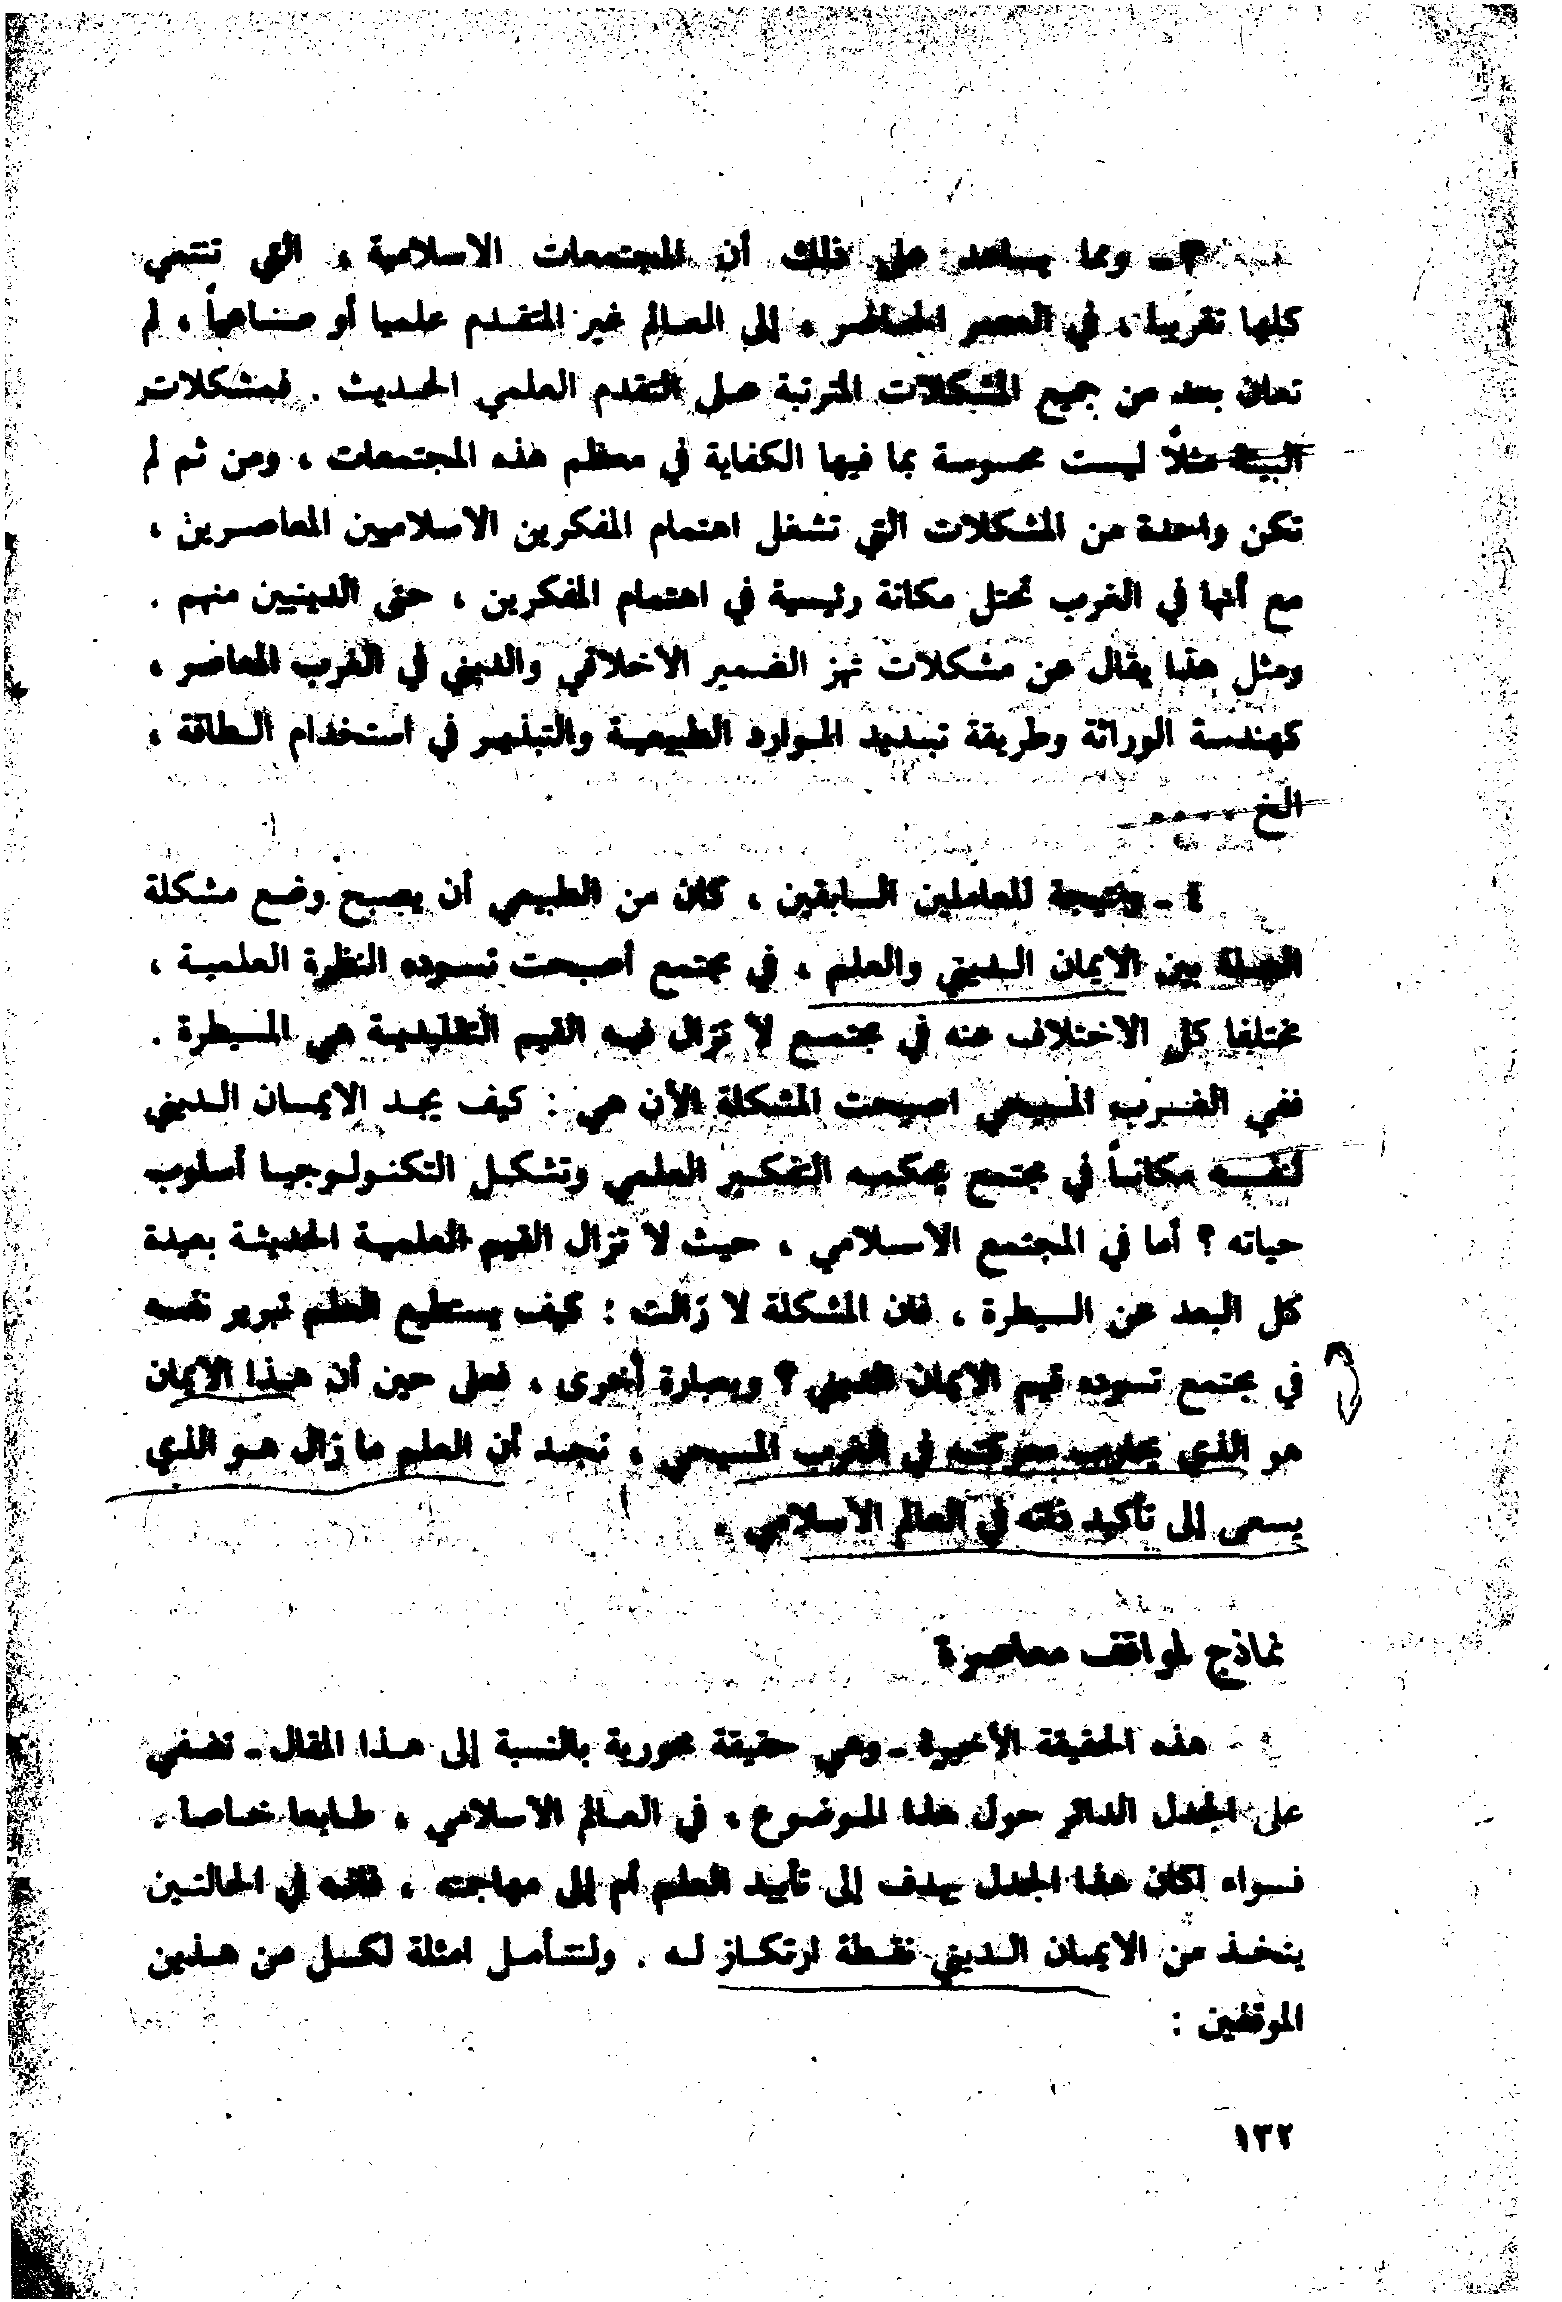 ٣ ـ ومما يساعد على ذلك أن المجتمعات الاسلامية ، التي تنتمي
كلها تقريبا ، في العصر الحاضر ، إلى العالم غير المتقدم علميا أو صناعياً ، لم
تعان بعد من جميع المشكلات المترتبة على التقدم العلمي الحديث . فمشكلات
البيئة مثلاً ليست محسوسة بما فيها الكفاية في معظم هذه المجتمعات ، ومن ثم لم
تكن واحدة من المشكلات التي تشغل اهتمام المفكرين الاسلاميين المعاصرين ،
مع أنها في الغرب تحتل مكانة رئيسية في اهتمام المفكرين ، حتى الدينيين منهم .
ومثل هذا يقال عن مشكلات تهز الضمير الاخلاقي والديني في الغرب المعاصر ،
كهندسة الوراثة وطريقة تبديد الموارد الطبيعية والتبذير في استخدام الطاقة ،
الخ . . . .
٤ ـ ونتيجة للعاملين السابقين ، كان من الطبيعي أن يصبح وضع مشكلة
الصلة بين الايمان الديني والعلم ، في مجتمع أصبحت تسوده النظرة العلمية ،
مختلفا كل الاختلاف عنه في مجتمع لا تزال فيه القيم التقليدية هي المسيطرة .
ففي الغرب المسيحي اصبحت المشكلة الأن هي : كيف يجد الايمان الديني
لنفسه مكاناً في مجتمع يحكمه التفكير العلمي وتشكل التكنولوجيا أسلوب
حياته ؟ أما في المجتمع الاسلامي ، حيث لا تزال القيم العلمية الحديثة بعيدة
كل البعد عن السيطرة ، فان المشكلة لا زالت : كيف يستطيع العلم تبرير نفسه
في مجتمع تسوده قيم الايمان الديني ؟ وبعبارة أخرى ، فعلى حين أن هذا الايمان
هو الذي يحارب معركته في الغرب المسيحي ، نجد أن العلم ما زال هو الذي
يسعى إلى تأكيد ذاته في العالم الاسلامي .
نماذج لمواقف معاصرة
هذه الحقيقة الأخيرة ـ وهي حقيقة محورية بالنسبة إلى هذا المقال ـ تضفي
على الجدل الدائر حول هذا الموضوع ، في العالم الاسلامي ، طابعا خاصا .
فسواء اكان هذا الجدل يهدف إلى تأييد العلم أم إلى مهاجمته ، فانه في الحالتين
يتخذ من الايمان الديني نقطة ارتكاز له . ولنتأمل امثلة لكل من هذين
الموقفين :
١٣٢